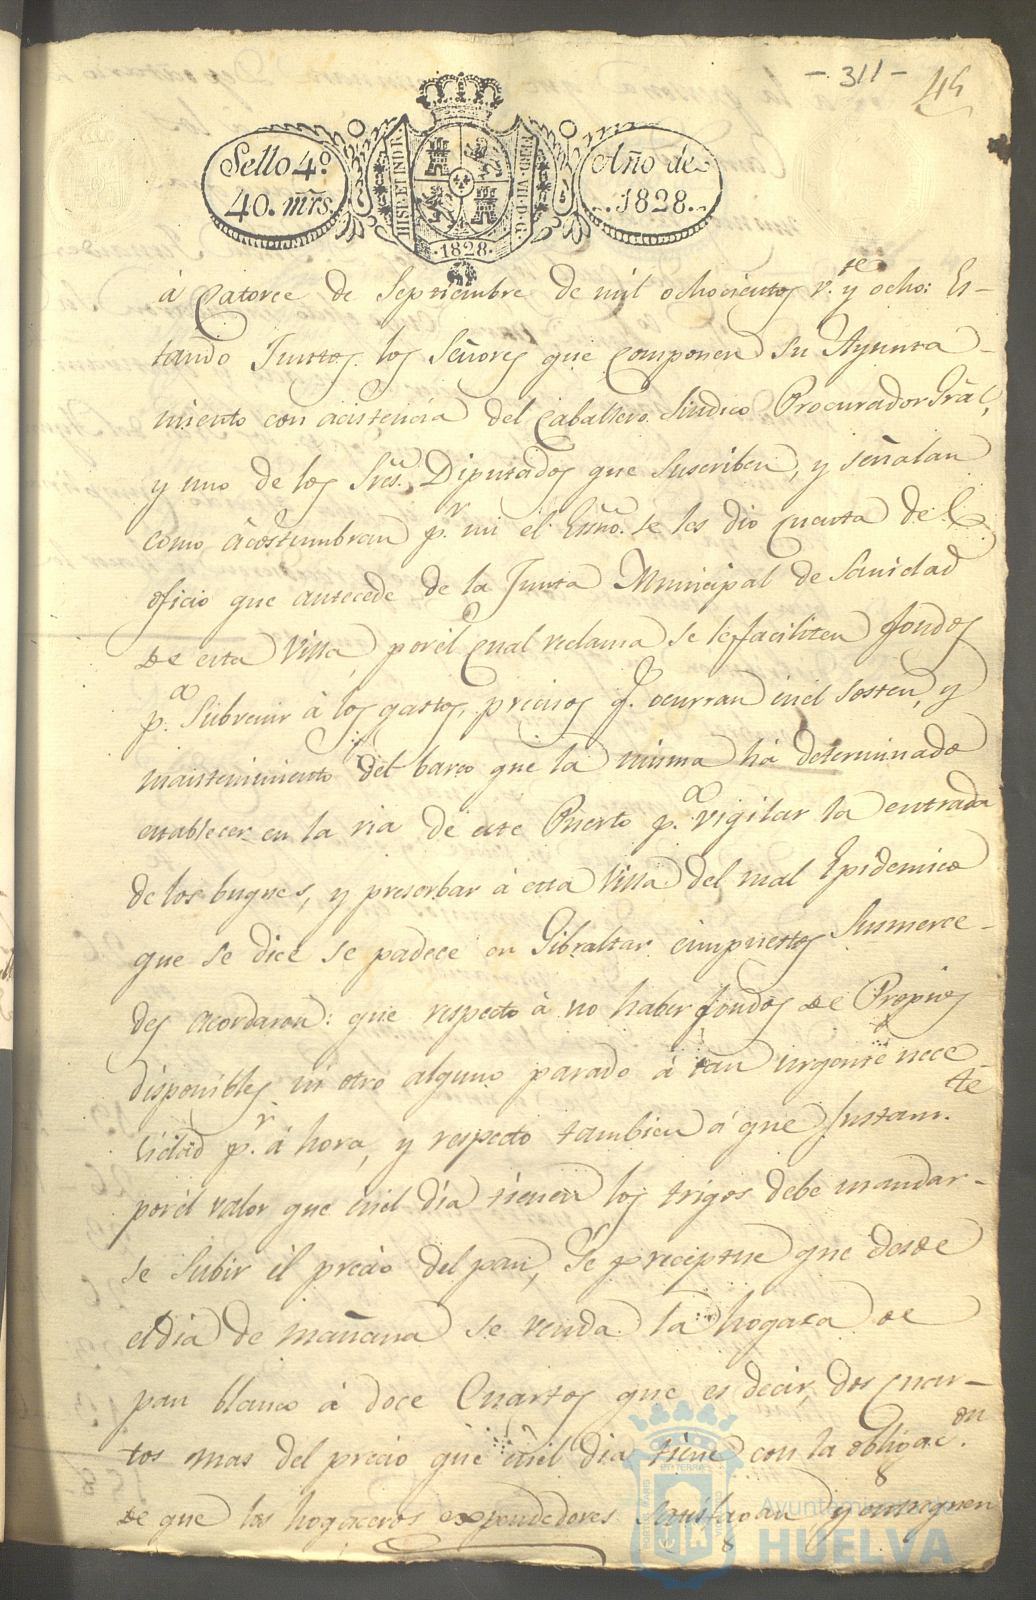 - 311 -
45
Sello 4.º
40. mrs.
HISP. ET IND. R.
FERD. VII. D. G.
· 1828 ·
Año de
1828.
á Catorce de Septiembre de mil ochocientos v.te y ocho: Es-
tando Juntos los Señores que componen su Ayunta-
miento con acistencia del Caballero Sindico Procurador Gral,
y uno de los Sres. Diputados que suscriben, y señalan
como acostumbran p.r mi el Esño. se les dio cuenta del
oficio que antecede de la Junta Municipal de Sanidad
de esta Villa, por el Cual reclama se le faciliten fondos
p.a Subvenir á los gastos precisos q.e ocurran en el sosten, y
mantenimiento del barco que la misma há determinado
establecer en la ria de este Puerto p.a vigilar la entrada
de los buques, y preserbar á esta Villa del mal Epidemico
que se dice se padece en Gibraltar. eimpuestos Susmerce-
des acordaron: que respecto á no haber fondos de Propios
disponibles ni otro alguno parado á tan urgente nece
sidad p.r á hora, y respecto tambien á que Justam.te
por el valor que en el dia tienen los trigos debe mandar-
se Subir el precio del pan, Se preceptue que desde
el dia de mañana se venda la hogaza de
pan blanco á doce Cuartos que es decir, dos cuar-
tos mas del precio que en el dia tiene con la obligac.on
de que los hogaceros expendedores Satisfagan y entreguen
Ayuntamiento
HUELVA